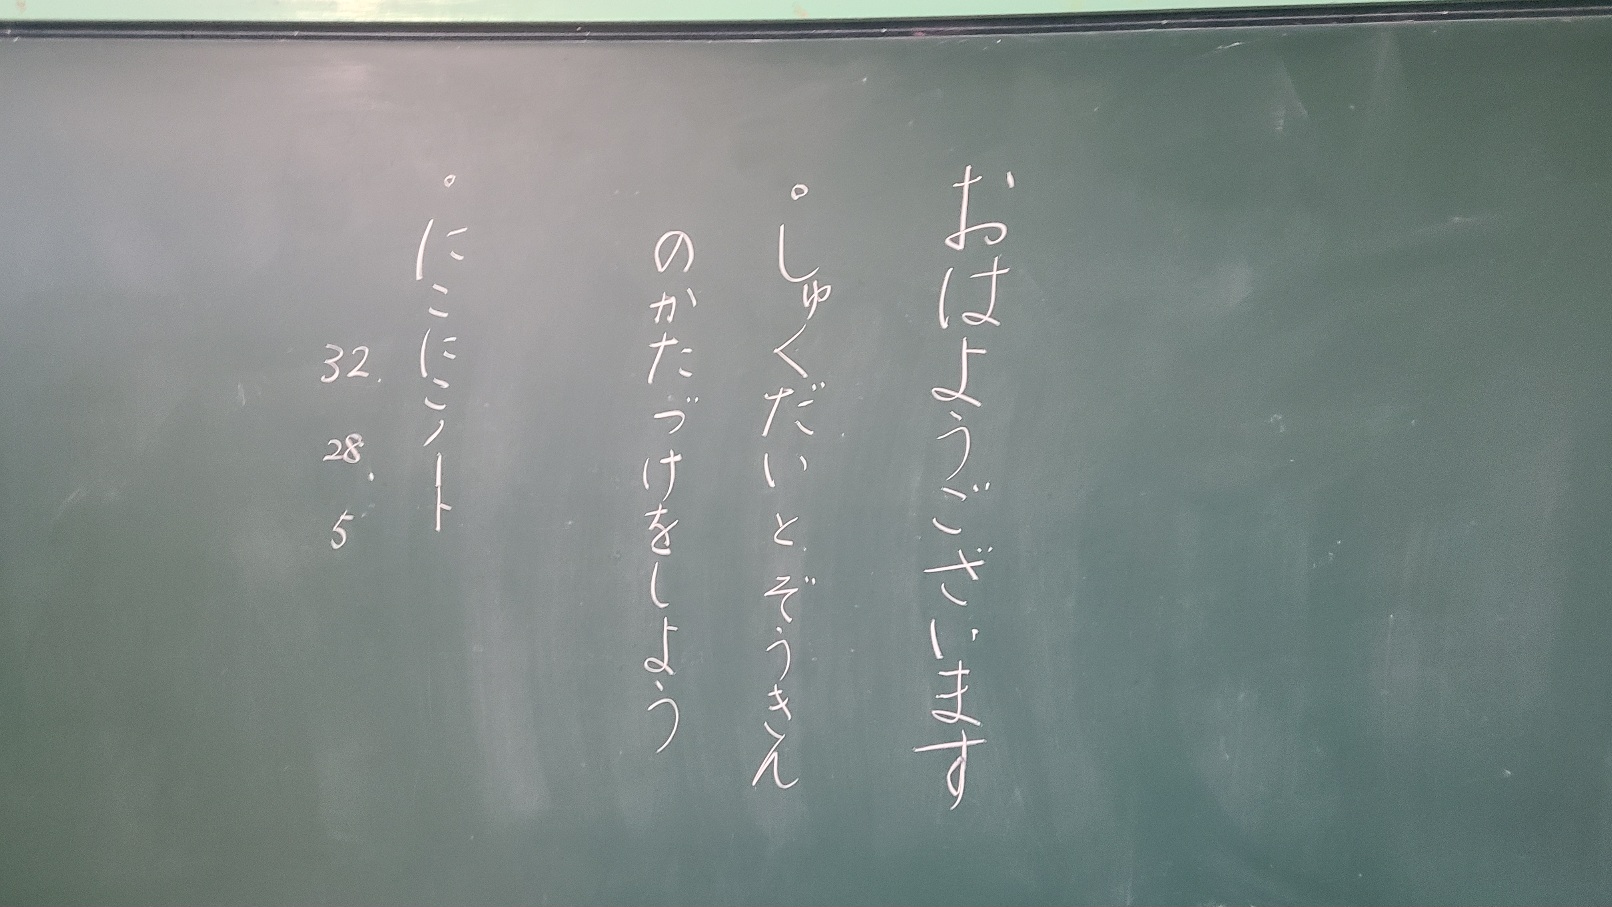 おはようございます
。しゅくだいとぞうきん
のかたづけをしよう
。にこにこノート
32. 28. 5